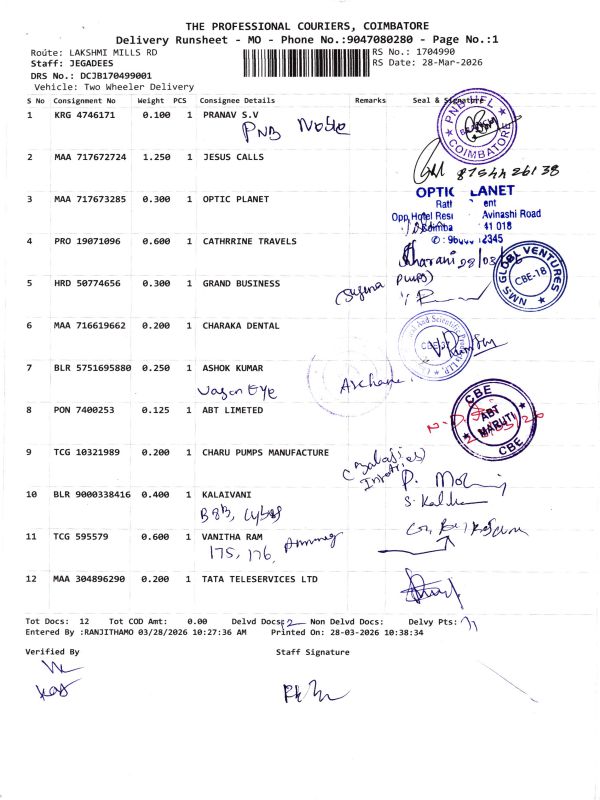 THE PROFESSIONAL COURIERS, COIMBATORE
Delivery Runsheet - MO - Phone No.:9047080280 - Page No.:1
Route: LAKSHMI MILLS RD RS No.: 1704990
Staff: JEGADEES RS Date: 28-Mar-2026
DRS No.: DCJB170499001
Vehicle: Two Wheeler Delivery
S No Consignment No Weight PCS Consignee Details Remarks Seal & Signature
1 KRG 4746171 0.100 1 PRANAV S.V
PNB
PNBHFL COIMBATORE
2 MAA 717672724 1.250 1 JESUS CALLS
87544 26138
3 MAA 717673285 0.300 1 OPTIC PLANET
OPTIC LANET
Opp.Hotel Avinashi Road
41 018
4 PRO 19071096 0.600 1 CATHRRINE TRAVELS
5 HRD 50774656 0.300 1 GRAND BUSINESS
NMS GLOBL VENTURES CBE-18
6 MAA 716619662 0.200 1 CHARAKA DENTAL
7 BLR 5751695880 0.250 1 ASHOK KUMAR
Vasan Eye
8 PON 7400253 0.125 1 ABT LIMETED
CBE ABT MARUTI CBE
9 TCG 10321989 0.200 1 CHARU PUMPS MANUFACTURE
10 BLR 9000338416 0.400 1 KALAIVANI
11 TCG 595579 0.600 1 VANITHA RAM
175, 176,
12 MAA 304896290 0.200 1 TATA TELESERVICES LTD
Tot Docs: 12 Tot COD Amt: 0.00 Delvd Docs: 12 Non Delvd Docs: Delvy Pts: 11
Entered By :RANJITHAMO 03/28/2026 10:27:36 AM Printed On: 28-03-2026 10:38:34
Verified By Staff Signature